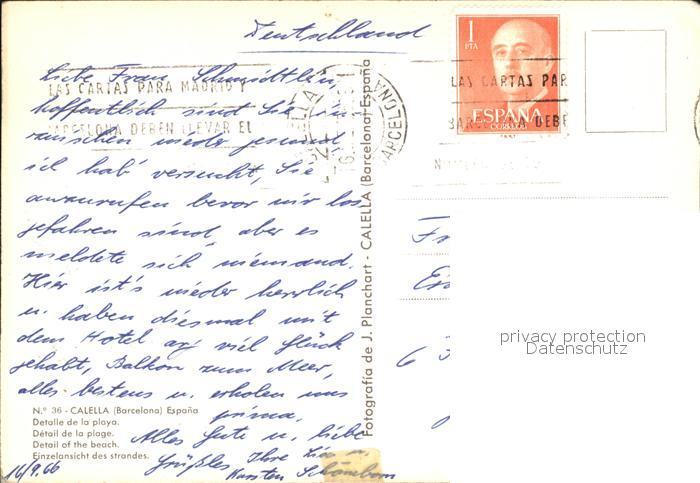 Deutschland
Liebe Frau Schmidtlein,
hoffentlich sind Sie in-
zwischen wieder gesund,
ich hab' versucht, Sie
anzurufen bevor wir los-
gefahren sind aber es
meldete sich niemand.
Hier ist's wieder herrlich
u. haben diesmal mit
dem Hotel arg viel Glück
gehabt, Balkon zum Meer,
alles bestens u. erholen uns
prima.
Alles Gute u. liebe
Grüßle, Ihre u.
Karsten
16/9.66
LAS CARTAS PARA MADRID Y
BARCELONA DEBEN LLEVAR EL
N.º 36 - CALELLA (Barcelona) España
Detalle de la playa.
Détail de la plage.
Detail of the beach.
Einzelansicht des strandes.
Fotografía de J. Planchart - CALELLA (Barcelona) España
1
PTA
ESPAÑA
CORREOS
LAS CARTAS PAR
BARCELONA DEBE
Fr
privacy protection
Datenschutz